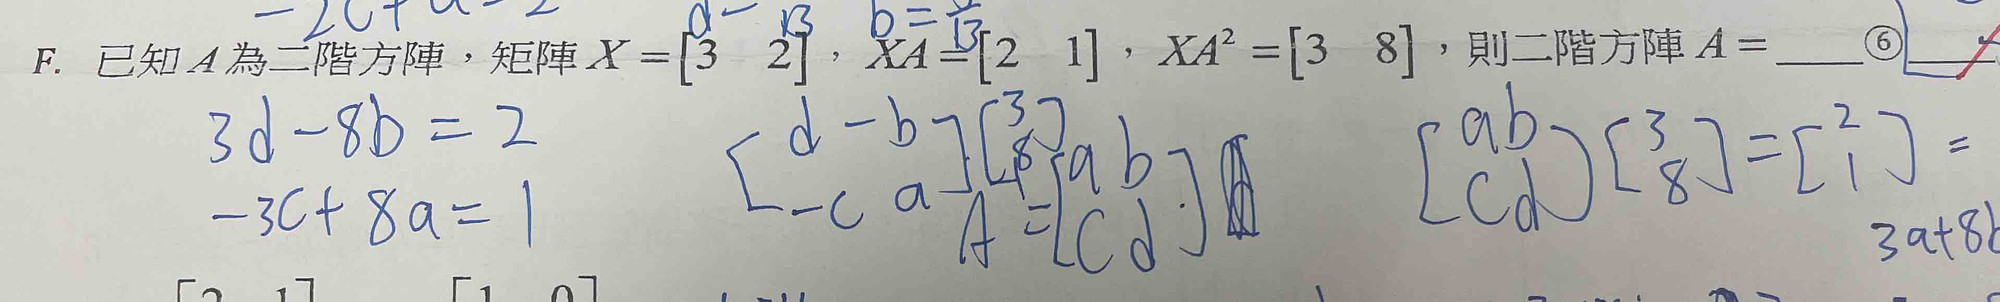 -2c+
d- 13 b= 13
F. 已知 A 為二階方陣，矩陣 X = [3 2]，XA = [2 1]，XA² = [3 8]，則二階方陣 A = ____⑥____
3d-8b=2
-3c+8a=1
[d -b
-c a] [3
8]
A = [a b
c d]
[a b
c d] [3
8] = [2
1] =
3a+8b
[2 1] [1 0]